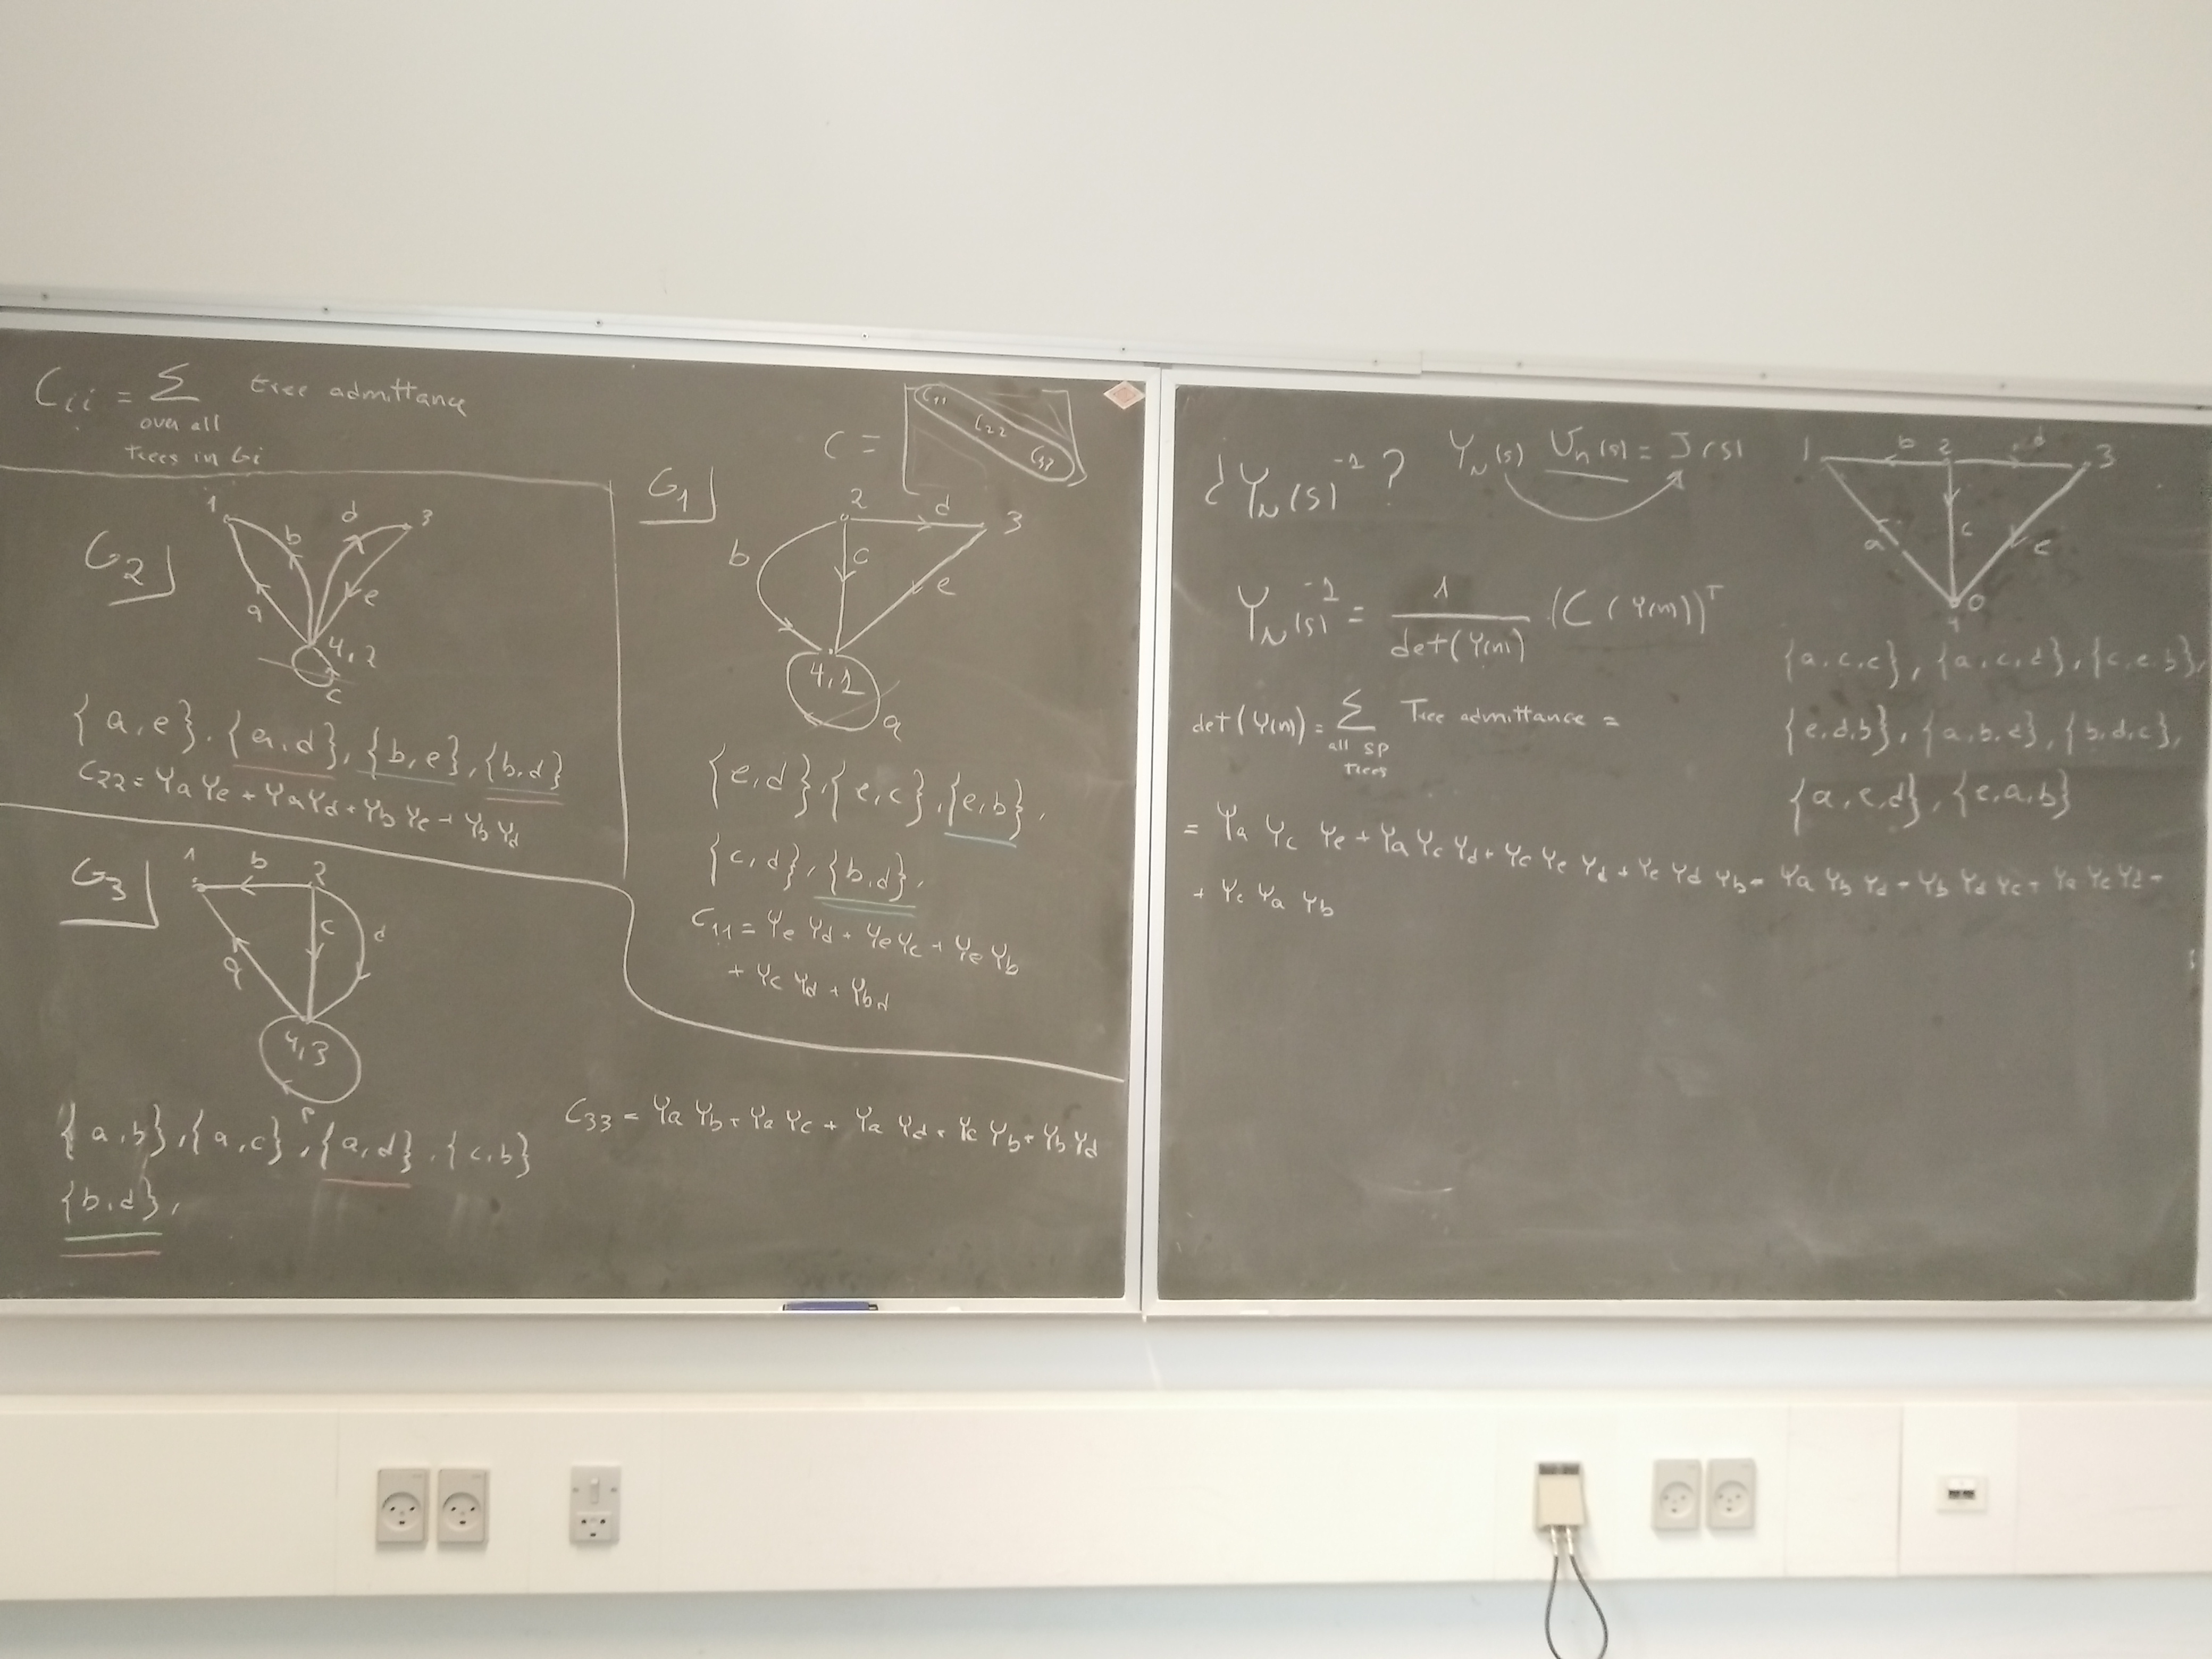 Cii = Σ tree admittance
over all
trees in Gi
C =
C11
C22
C33
G2
1
b
d
3
a
e
4,2
c
{a,e}, {a,d}, {b,e}, {b,d}
C22 = Ya Ye + Ya Yd + Yb Ye + Yb Yd
G1
2
d
3
b
c
e
4,1
a
{e,d}, {e,c}, {e,b},
{c,d}, {b,d},
C11 = Ye Yd + Ye Yc + Ye Yb
+ Yc Yd + Ybd
G3
1
b
2
c
d
a
4,3
{a,b}, {a,c}, {a,d}, {c,b}
{b,d},
C33 = Ya Yb + Ya Yc + Ya Yd + Yc Yb + Yb Yd
¿YN(s)⁻¹?
YN(s) Un(s) = J(s)
1
b
2
d
3
a
c
e
0
4
YN(s)⁻¹ = 1/det(Y(n)) (C(Y(n)))ᵀ
det(Y(n)) = Σ Tree admittance =
all sp
trees
{a,c,e}, {a,c,d}, {c,e,b},
{e,d,b}, {a,b,d}, {b,d,c},
{a,e,d}, {e,a,b}
= Ya Yc Ye + Ya Yc Yd + Yc Ye Yd + Ye Yd Yb + Ya Yb Yd + Yb Yd Yc + Ya Ye Yd +
+ Ye Ya Yb